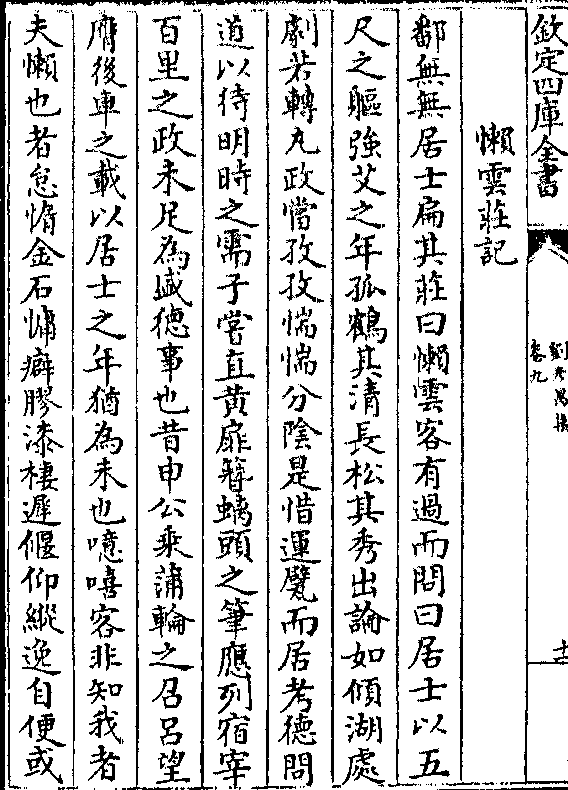 欽定四庫全書
卷九
懶雲莊記
鄱無無居士扁其莊曰懶雲客有過而問曰居士以五
尺之軀強艾之年孤鶴其清長松其秀出論如傾湖處
劇若轉丸政當孜孜惴惴分陰是惜運甓而居考德問
道以待明時之需子嘗直黃扉簪螭頭之筆應列宿宰
百里之政未足為盛德事也昔申公乘蒲輪之召呂望
膺後車之載以居士之年猶為未也噫嘻客非知我者
夫懶也者怠惰金石慵癖膠漆棲遲偃仰縱逸自便或